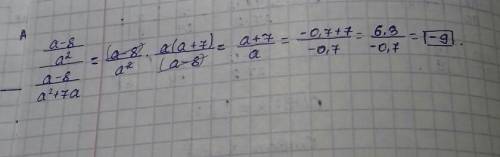 A
(a-8)/a² / (a-8)/(a²+7a) = (a-8)/a² · a(a+7)/(a-8) = (a+7)/a = (-0,7+7)/(-0,7) = 6.3/(-0,7) = -9.